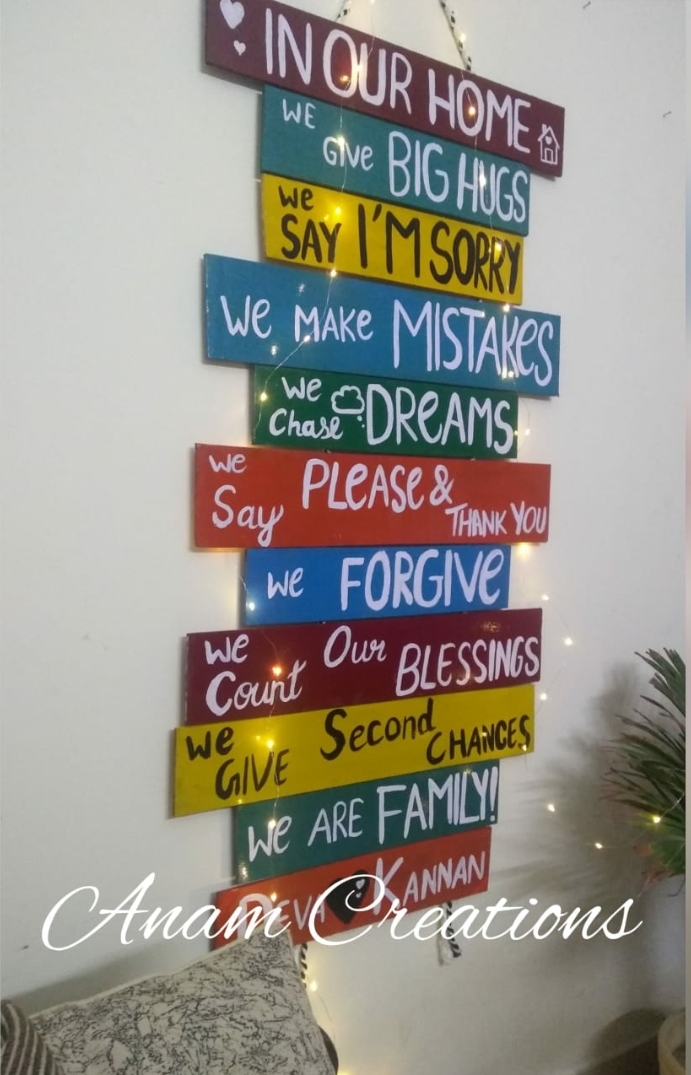 IN OUR HOME
WE GIVE BIG HUGS
We SAY I'M SORRY
We MAKE MISTAKES
We Chase DREAMS
We Say PLEASE & THANK YOU
We FORGIVE
We Count Our BLESSINGS
We GIVE Second CHANCES
We ARE FAMILY!
DEVA KANNAN
Anam Creations